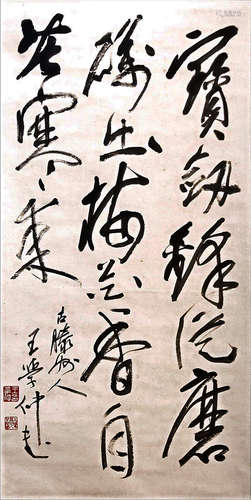 寶劍鋒從磨
礪出梅花香自
苦寒來
古滕州人
王學仲書